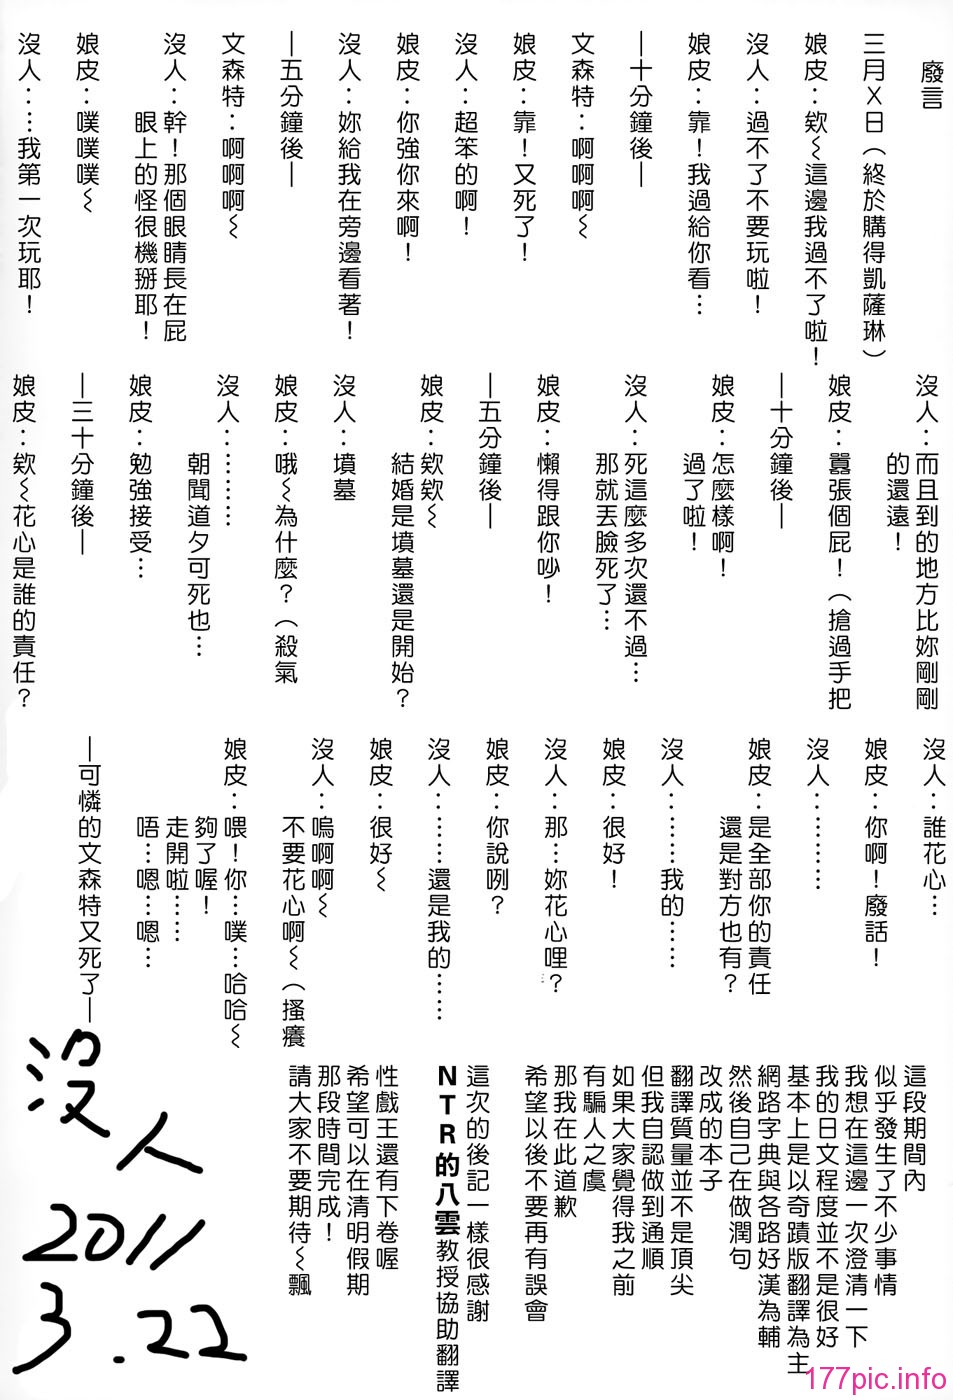 廢言
三月X日（終於購得凱薩琳）
娘皮：欸～這邊我過不了啦！
沒人：過不了不要玩啦！
娘皮：靠！我過給你看…
—十分鐘後—
文森特：啊啊啊～
娘皮：靠！又死了！
沒人：超笨的啊！
娘皮：你強你來啊！
沒人：妳給我在旁邊看著！
—五分鐘後—
文森特：啊啊啊～
沒人：幹！那個眼睛長在屁
眼上的怪很機掰耶！
娘皮：噗噗噗～
沒人：…我第一次玩耶！
沒人：而且到的地方比妳剛剛
的還遠！
娘皮：囂張個屁！（搶過手把
—十分鐘後—
娘皮：怎麼樣啊！
過了啦！
沒人：死這麼多次還不過…
那就丟臉死了…
娘皮：懶得跟你吵！
—五分鐘後—
娘皮：欸欸～
結婚是墳墓還是開始？
沒人：墳墓
娘皮：哦～為什麼？（殺氣
沒人：………
朝聞道夕可死也…
娘皮：勉強接受…
—三十分鐘後—
娘皮：欸～花心是誰的責任？
沒人：誰花心…
娘皮：你啊！廢話！
沒人：………
娘皮：是全部你的責任
還是對方也有？
沒人：……我的……
娘皮：很好！
沒人：那…妳花心哩？
娘皮：你說咧？
沒人：……還是我的……
娘皮：很好～
沒人：嗚啊啊～
不要花心啊～（搔癢
娘皮：喂！你…噗…哈哈～
夠了喔！
走開啦……
唔…嗯…嗯…
—可憐的文森特又死了—
這段期間內
似乎發生了不少事情
我想在這邊一次澄清一下
我的日文程度並不是很好
基本上是以奇蹟版翻譯為主
網路字典與各路好漢為輔
然後自己在做潤句
改成的本子
翻譯質量並不是頂尖
但我自認做到通順
如果大家覺得我之前
有騙人之虞
那我在此道歉
希望以後不要再有誤會
這次的後記一樣很感謝
NTR的八雲教授協助翻譯
性戲王還有下卷喔
希望可以在清明假期
那段時間完成！
請大家不要期待～飄
沒人
2011
3.22
177pic.info